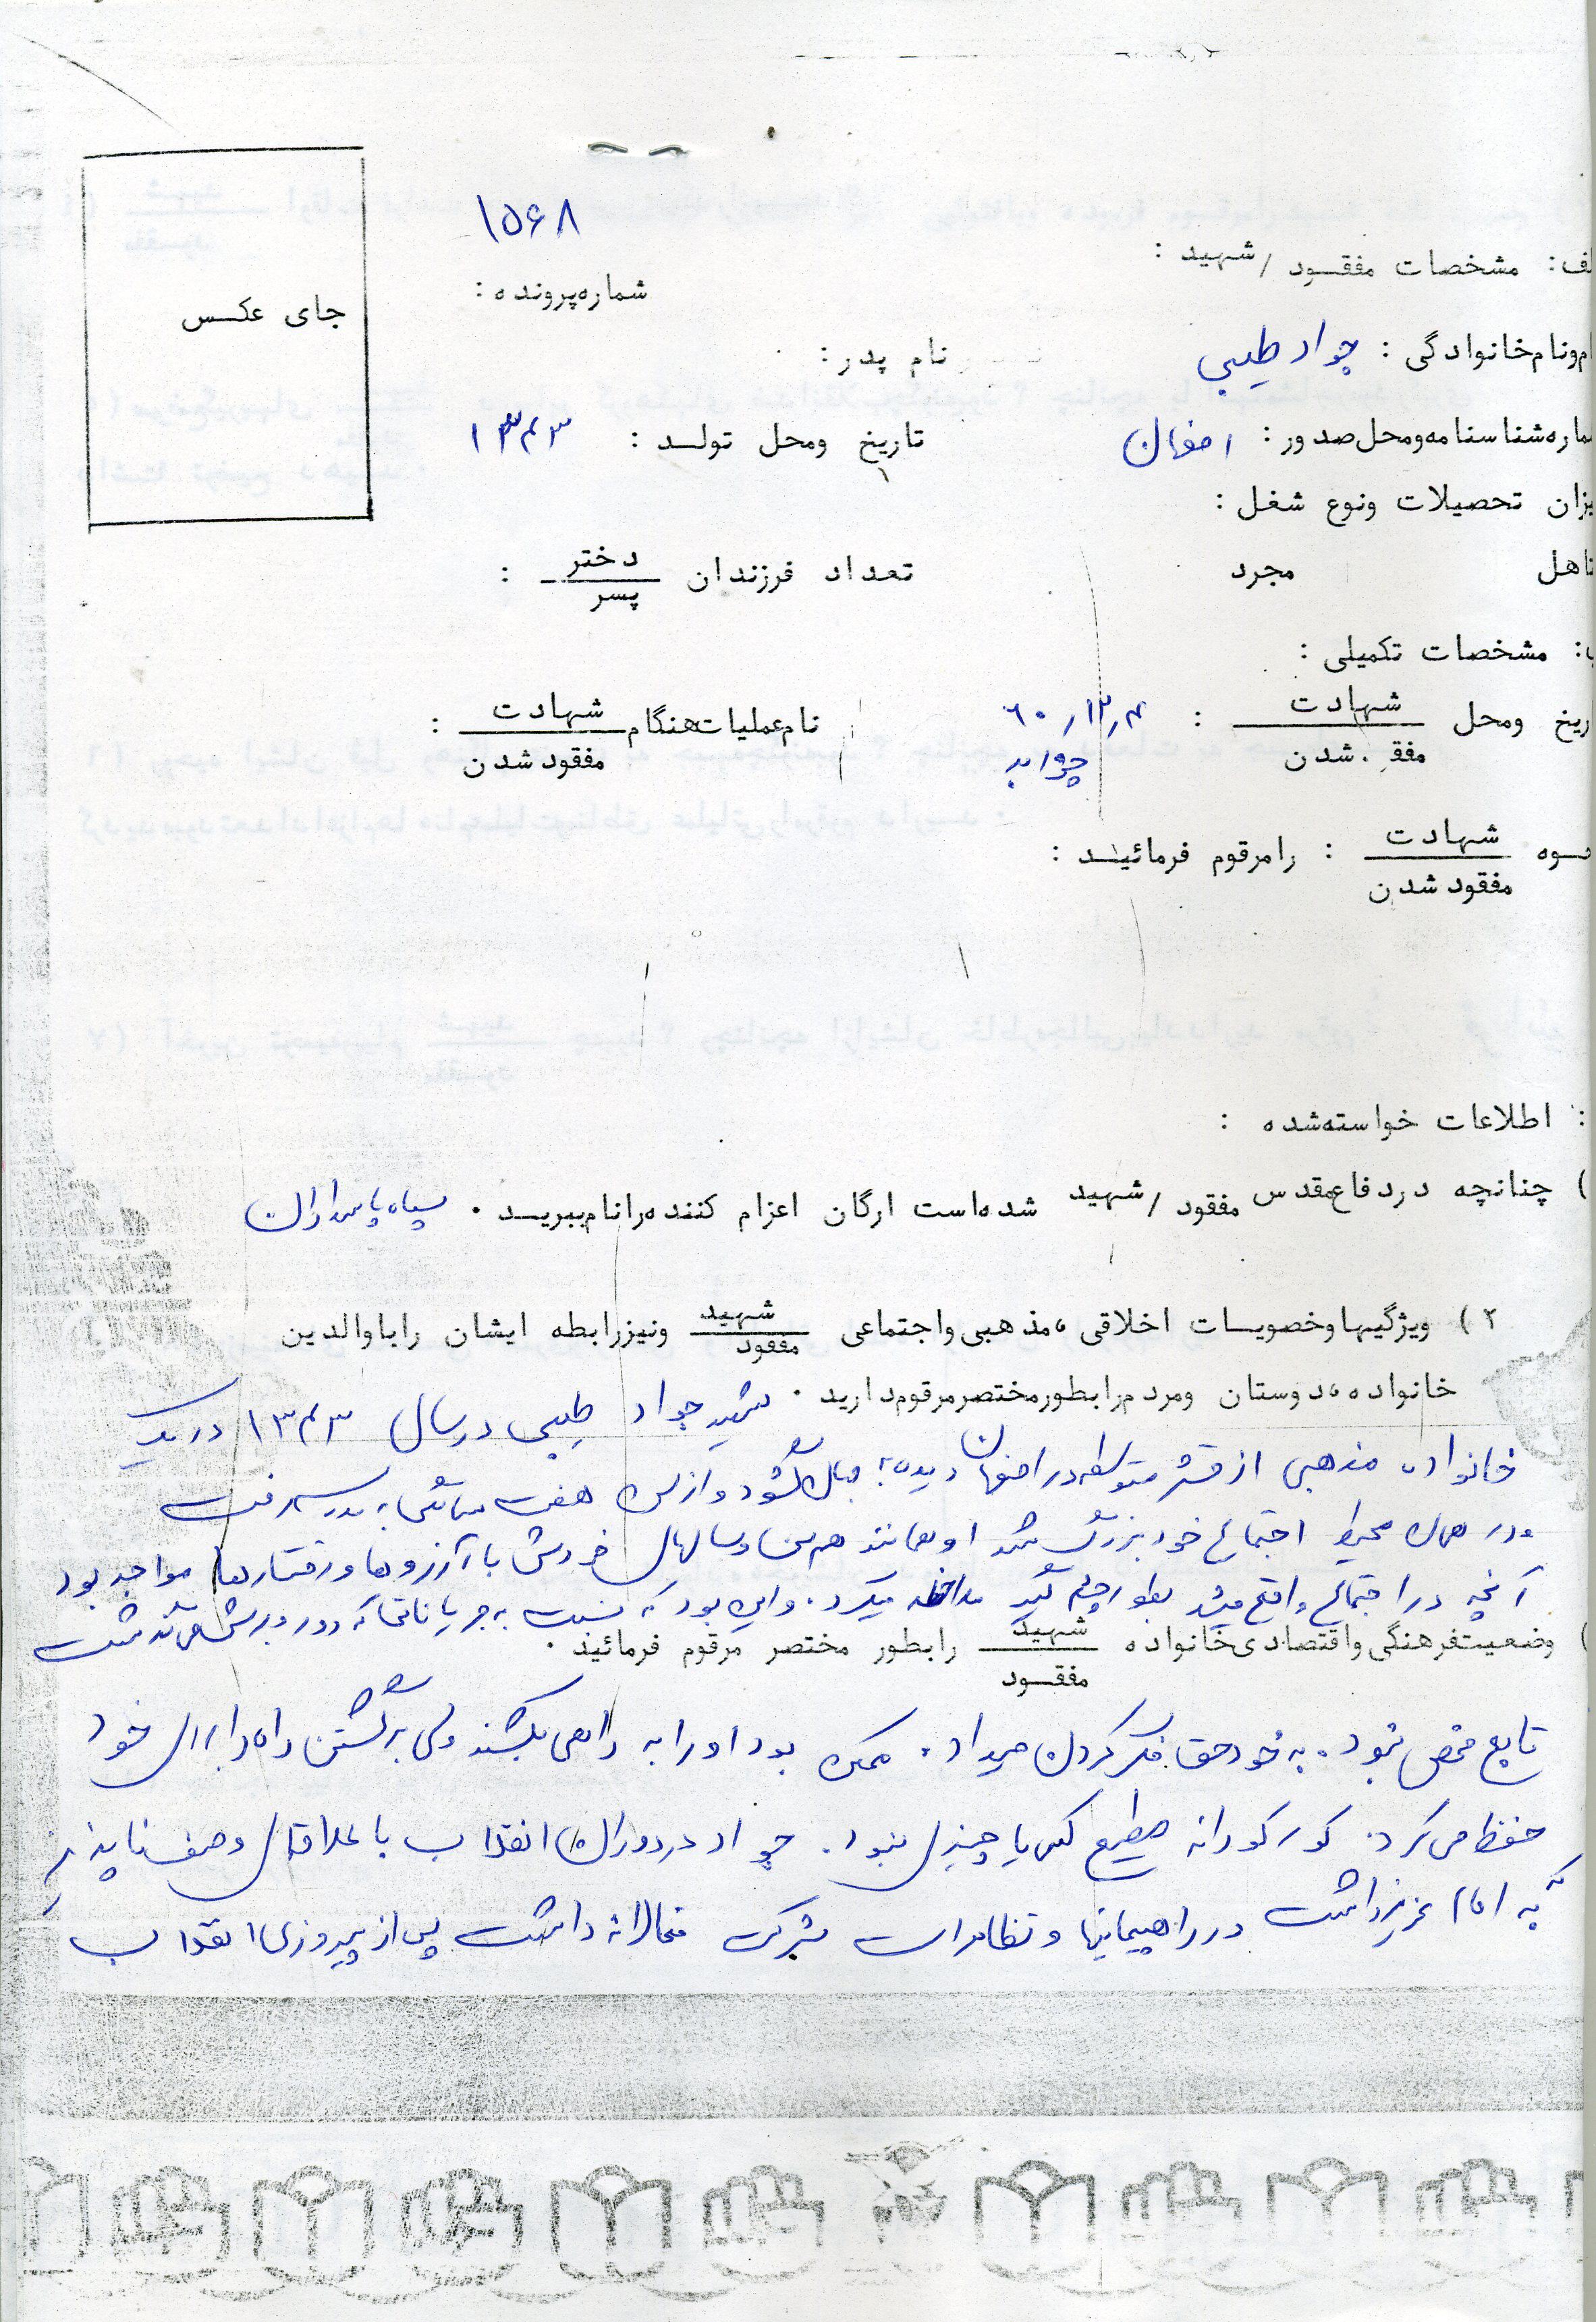 ۱۵۶۸
لف: مشخصات مفقود / شهید :
شماره پرونده :
جای عکس
ام و نام خانوادگی : جواد طیبی نام پدر :
ماره شناسنامه و محل صدور : اصفهان تاریخ و محل تولد : ۱۳۴۳
یزان تحصیلات و نوع شغل :
تاهل مجرد تعداد فرزندان دختر / پسر :
ب : مشخصات تکمیلی :
ریخ و محل شهادت / مفقود شدن : ۶۰/۱۲/۴ چزابه نام عملیات هنگام شهادت / مفقود شدن :
حوه شهادت / مفقود شدن : را مرقوم فرمائید :
: اطلاعات خواسته شده :
) چنانچه در دفاع مقدس مفقود / شهید شده است ارگان اعزام کننده را نام ببرید . سپاه پاسداران
۲ ) ویژگیها و خصویسات اخلاقی ، مذهبی و اجتماعی شهید / مفقود و نیز رابطه ایشان را با والدین
خانواده ، دوستان و مردم را بطور مختصر مرقوم دارید . شهید جواد طیبی در سال ۱۳۴۳ در یک
خانواده مذهبی از قشر متوسط در اصفهان دیده به جهان گشود و از سن هفت سالگی به مدرسه رفت
و در همان محیط اجتماع خود بزرگ شد او همانند هم سن و سالهای خودش با آرزوها و رفتارها مواجه بود
آنچه در اجتماع واقع میشد بطور چشم گیر میکرد . و این بود که نسبت به جریاناتی که دور و برش میگذشت
) وضعیت فرهنگی و اقتصادی خانواده شهید / مفقود را بطور مختصر مرقوم فرمائید .
تابع محض نبود . به خود حق فکر کردن میداد . ممکن بود او را به راهی بکشند ولی برگشتن راه را برای خود
حفظ می کرد . کورکورانه مطیع کسی یا چیزی نبود . جواد در دوران انقلاب با علاقه‌ای وصف ناپذیر
که به امام عزیز داشت در راهپیمائیها و تظاهرات شرکت فعالانه داشت پس از پیروزی انقلاب